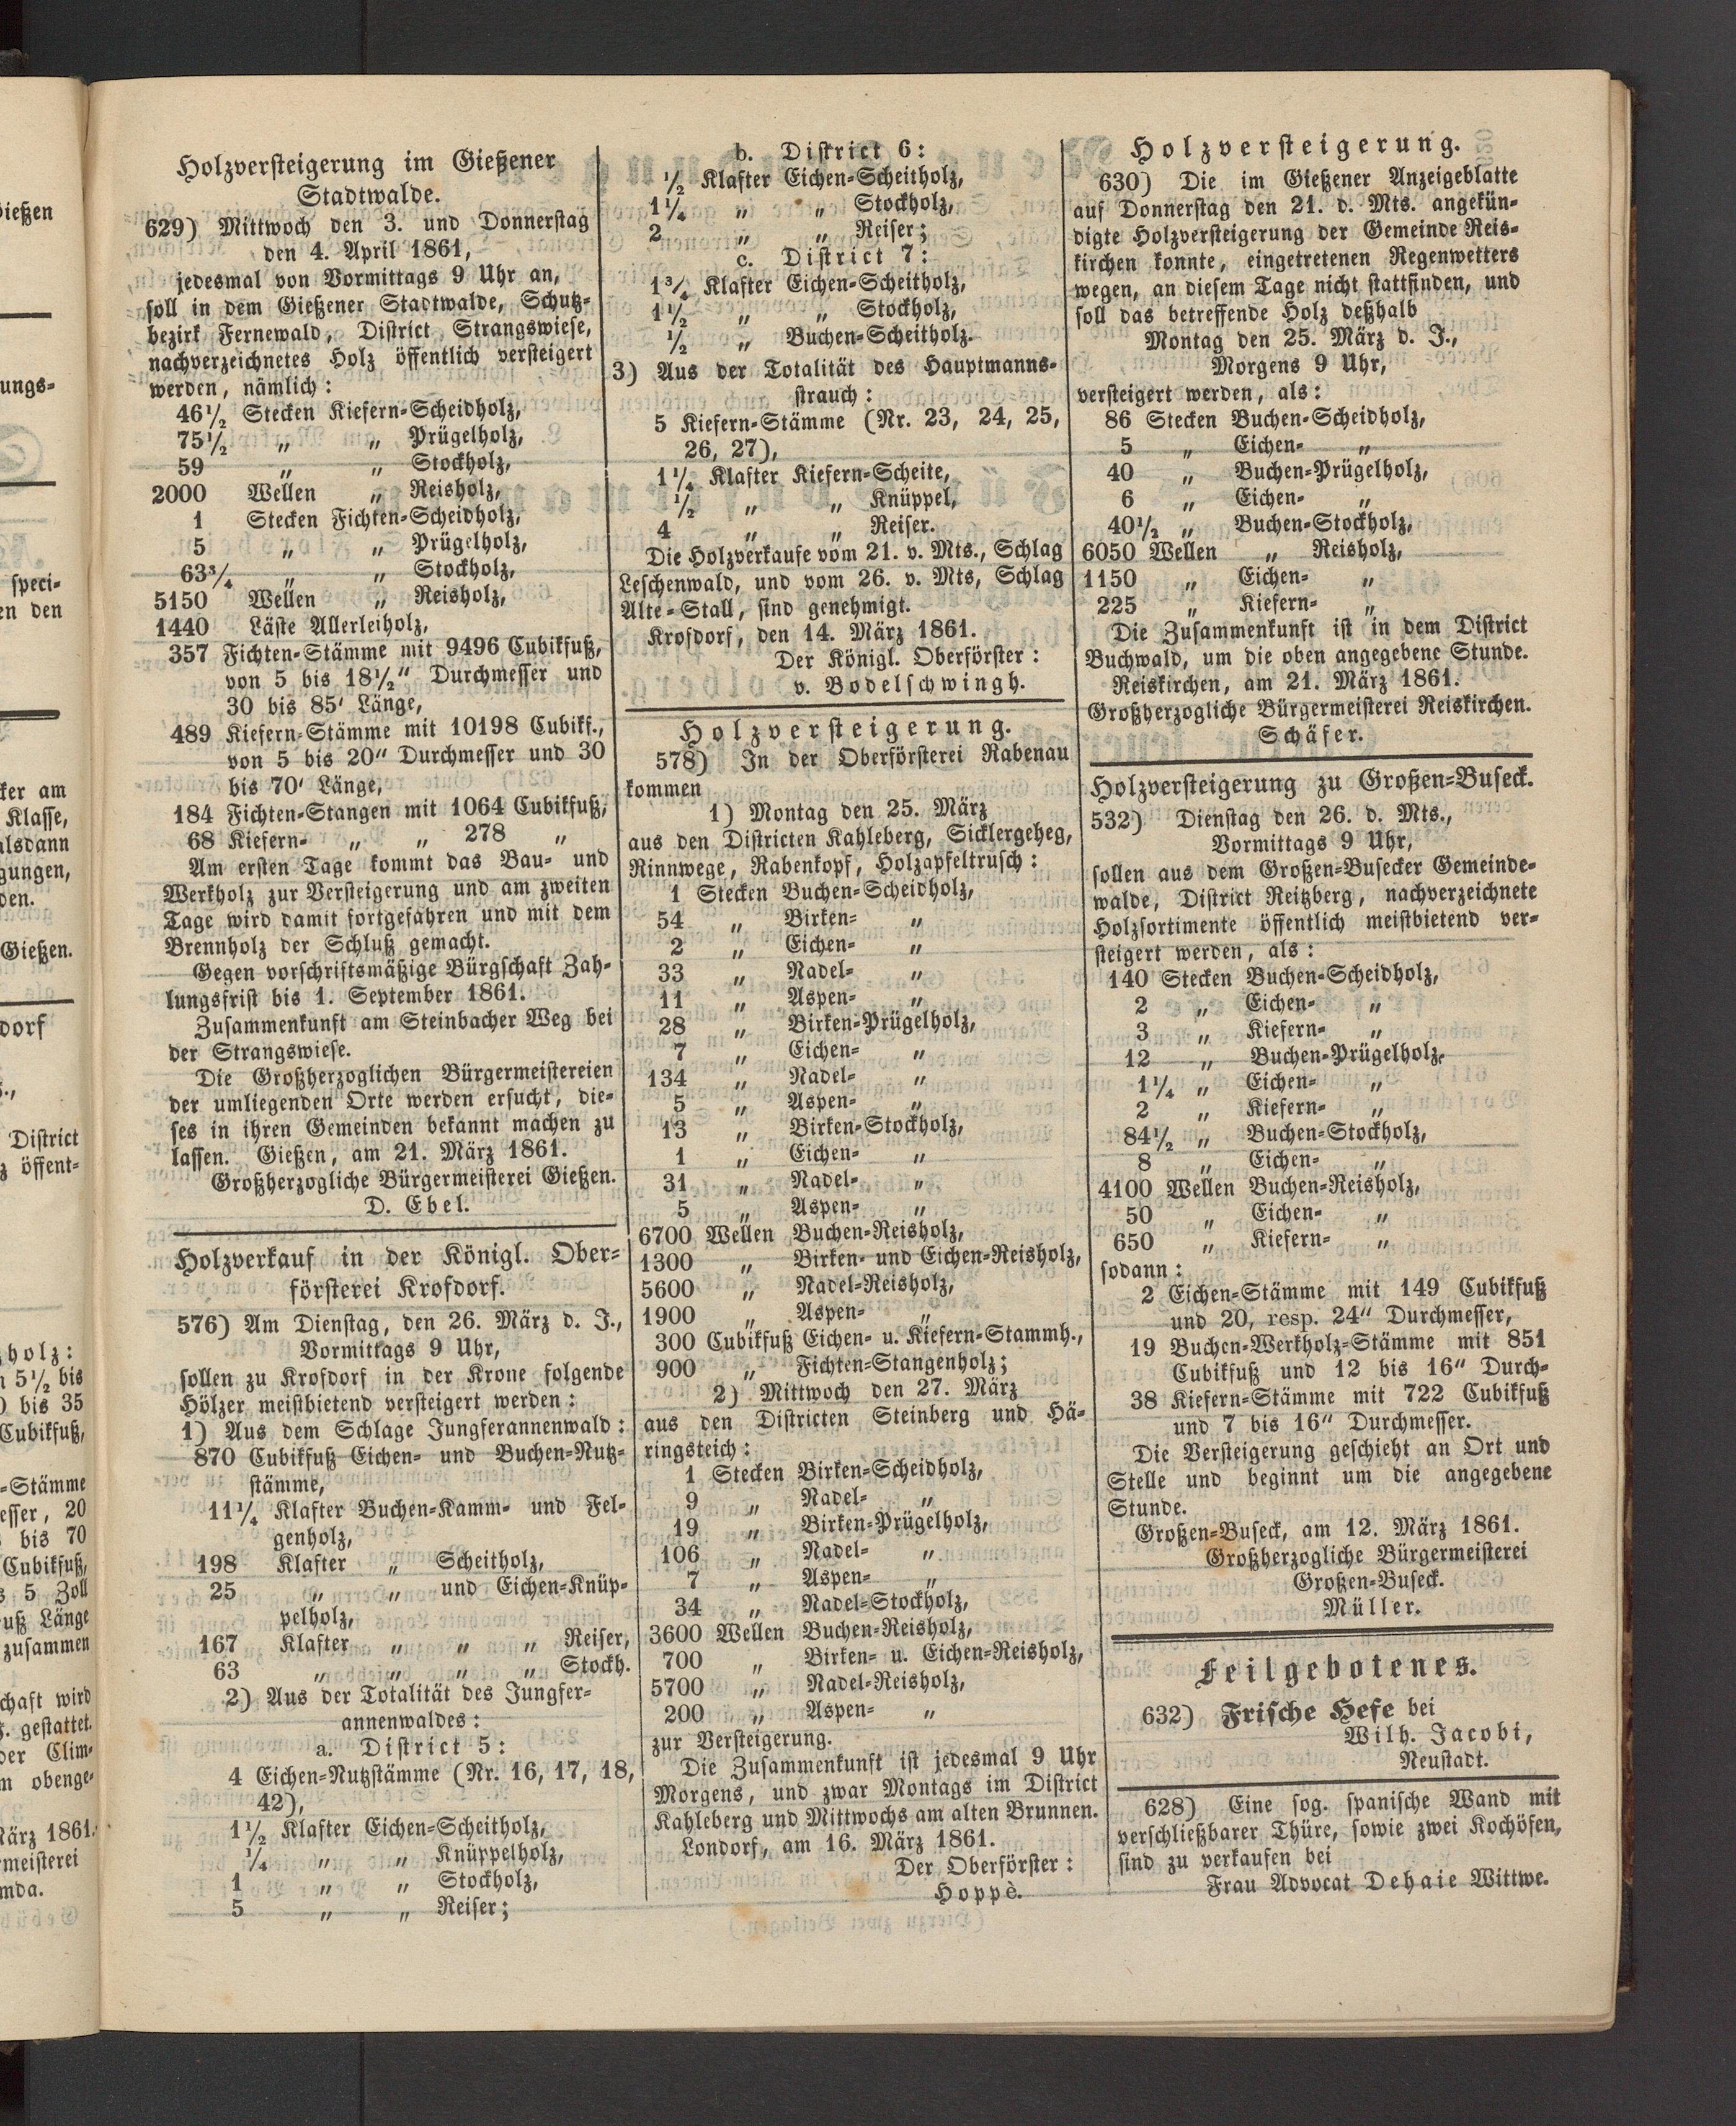 Holzversteigerung im Gießener
Stadtwalde.
629) Mittwoch den 3. und Donnerstag
den 4. April 1861,
jedesmal von Vormittags 9 Uhr an,
soll in dem Gießener Stadtwalde, Schutz-
bezirk Fernewald, District Strangswiese,
nachverzeichnetes Holz öffentlich versteigert
werden, nämlich:
46½ Stecken Kiefern-Scheidholz,
75½ „ „ Prügelholz,
59 „ „ Stockholz,
2000 Wellen „ Reisholz,
1 Stecken Fichten-Scheidholz,
5 „ „ Prügelholz,
63¾ „ „ Stockholz,
5150 Wellen „ Reisholz,
1440 Läste Allerleiholz,
357 Fichten-Stämme mit 9496 Cubikfuß,
von 5 bis 18½“ Durchmesser und
30 bis 85' Länge,
489 Kiefern-Stämme mit 10198 Cubikf.,
von 5 bis 20“ Durchmesser und 30
bis 70' Länge,
184 Fichten-Stangen mit 1064 Cubikfuß,
68 Kiefern- „ „ 278 „
Am ersten Tage kommt das Bau- und
Werkholz zur Versteigerung und am zweiten
Tage wird damit fortgefahren und mit dem
Brennholz der Schluß gemacht.
Gegen vorschriftsmäßige Bürgschaft Zah-
lungsfrist bis 1. September 1861.
Zusammenkunft am Steinbacher Weg bei
der Strangswiese.
Die Großherzoglichen Bürgermeistereien
der umliegenden Orte werden ersucht, die-
ses in ihren Gemeinden bekannt machen zu
lassen. Gießen, am 21. März 1861.
Großherzogliche Bürgermeisterei Gießen.
D. Ebel.
Holzverkauf in der Königl. Ober-
försterei Krofdorf.
576) Am Dienstag, den 26. März d. J.,
Vormittags 9 Uhr,
sollen zu Krofdorf in der Krone folgende
Hölzer meistbietend versteigert werden:
1) Aus dem Schlage Jungferannenwald:
870 Cubikfuß Eichen- und Buchen-Nutz-
stämme,
11¼ Klafter Buchen-Kamm- und Fel-
genholz,
198 Klafter „ Scheitholz,
25 „ „ und Eichen-Knüp-
pelholz,
167 Klafter „ „ „ Reiser,
63 „ „ „ „ Stockh.
2) Aus der Totalität des Jungfer-
annenwaldes:
a. District 5:
4 Eichen-Nutzstämme (Nr. 16, 17, 18,
42),
1½ Klafter Eichen-Scheitholz,
¼ „ „ Knüppelholz,
1 „ „ Stockholz,
5 „ „ Reiser;
b. District 6:
½ Klafter Eichen-Scheitholz,
1¼ „ „ Stockholz,
2 „ „ Reiser;
c. District 7:
1¾ Klafter Eichen-Scheitholz,
1½ „ „ Stockholz,
½ „ Buchen-Scheitholz.
3) Aus der Totalität des Hauptmanns-
strauch:
5 Kiefern-Stämme (Nr. 23, 24, 25,
26, 27),
1¼ Klafter Kiefern-Scheite,
½ „ „ Knüppel,
4 „ „ Reiser.
Die Holzverkaufe vom 21. v. Mts., Schlag
Leschenwald, und vom 26. v. Mts, Schlag
Alte-Stall, sind genehmigt.
Krofdorf, den 14. März 1861.
Der Königl. Oberförster:
v. Bodelschwingh.
Holzversteigerung.
578) In der Oberförsterei Rabenau
kommen
1) Montag den 25. März
aus den Districten Kahleberg, Sicklergeheg,
Rinnwege, Rabenkopf, Holzapfeltrusch:
1 Stecken Buchen-Scheidholz,
54 „ Birken- „
2 „ Eichen- „
33 „ Nadel- „
11 „ Aspen- „
28 „ Birken-Prügelholz,
7 „ Eichen- „
134 „ Nadel- „
5 „ Aspen- „
13 „ Birken-Stockholz,
1 „ Eichen- „
31 „ Nadel- „
5 „ Aspen- „
6700 Wellen Buchen-Reisholz,
1300 „ Birken- und Eichen-Reisholz,
5600 „ Nadel-Reisholz,
1900 „ Aspen- „
300 Cubikfuß Eichen- u. Kiefern-Stammh.,
900 „ Fichten-Stangenholz;
2) Mittwoch den 27. März
aus den Districten Steinberg und Hä-
ringsteich:
1 Stecken Birken-Scheidholz,
9 „ Nadel- „
19 „ Birken-Prügelholz,
106 „ Nadel- „
7 „ Aspen- „
34 „ Nadel-Stockholz,
3600 Wellen Buchen-Reisholz,
700 „ Birken- u. Eichen-Reisholz,
5700 „ Nadel-Reisholz,
200 „ Aspen- „
zur Versteigerung.
Die Zusammenkunft ist jedesmal 9 Uhr
Morgens, und zwar Montags im District
Kahleberg und Mittwochs am alten Brunnen.
Londorf, am 16. März 1861.
Der Oberförster:
Hoppè.
Holzversteigerung.
630) Die im Gießener Anzeigeblatte
auf Donnerstag den 21. d. Mts. angekün-
digte Holzversteigerung der Gemeinde Reis-
kirchen konnte, eingetretenen Regenwetters
wegen, an diesem Tage nicht stattfinden, und
soll das betreffende Holz deßhalb
Montag den 25. März d. J.,
Morgens 9 Uhr,
versteigert werden, als:
86 Stecken Buchen-Scheidholz,
5 „ Eichen- „
40 „ Buchen-Prügelholz,
6 „ Eichen- „
40½ „ Buchen-Stockholz,
6050 Wellen „ Reisholz,
1150 „ Eichen- „
225 „ Kiefern- „
Die Zusammenkunft ist in dem District
Buchwald, um die oben angegebene Stunde.
Reiskirchen, am 21. März 1861.
Großherzogliche Bürgermeisterei Reiskirchen.
Schäfer.
Holzversteigerung zu Großen-Buseck.
532) Dienstag den 26. d. Mts.,
Vormittags 9 Uhr,
sollen aus dem Großen-Busecker Gemeinde-
walde, District Reitzberg, nachverzeichnete
Holzsortimente öffentlich meistbietend ver-
steigert werden, als:
140 Stecken Buchen-Scheidholz,
2 „ Eichen- „
3 „ Kiefern- „
12 „ Buchen-Prügelholz,
1¼ „ Eichen- „
2 „ Kiefern- „
84½ „ Buchen-Stockholz,
8 „ Eichen- „
4100 Wellen Buchen-Reisholz,
50 „ Eichen- „
650 „ Kiefern- „
sodann:
2 Eichen-Stämme mit 149 Cubikfuß
und 20, resp. 24“ Durchmesser,
19 Buchen-Werkholz-Stämme mit 851
Cubikfuß und 12 bis 16“ Durch-
38 Kiefern-Stämme mit 722 Cubikfuß
und 7 bis 16“ Durchmesser.
Die Versteigerung geschieht an Ort und
Stelle und beginnt um die angegebene
Stunde.
Großen-Buseck, am 12. März 1861.
Großherzogliche Bürgermeisterei
Großen-Buseck.
Müller.
Feilgebotenes.
632) Frische Hefe bei
Wilh. Jacobi,
Neustadt.
628) Eine sog. spanische Wand mit
verschließbarer Thüre, sowie zwei Kochöfen,
sind zu verkaufen bei
Frau Advocat Dehaie Wittwe.